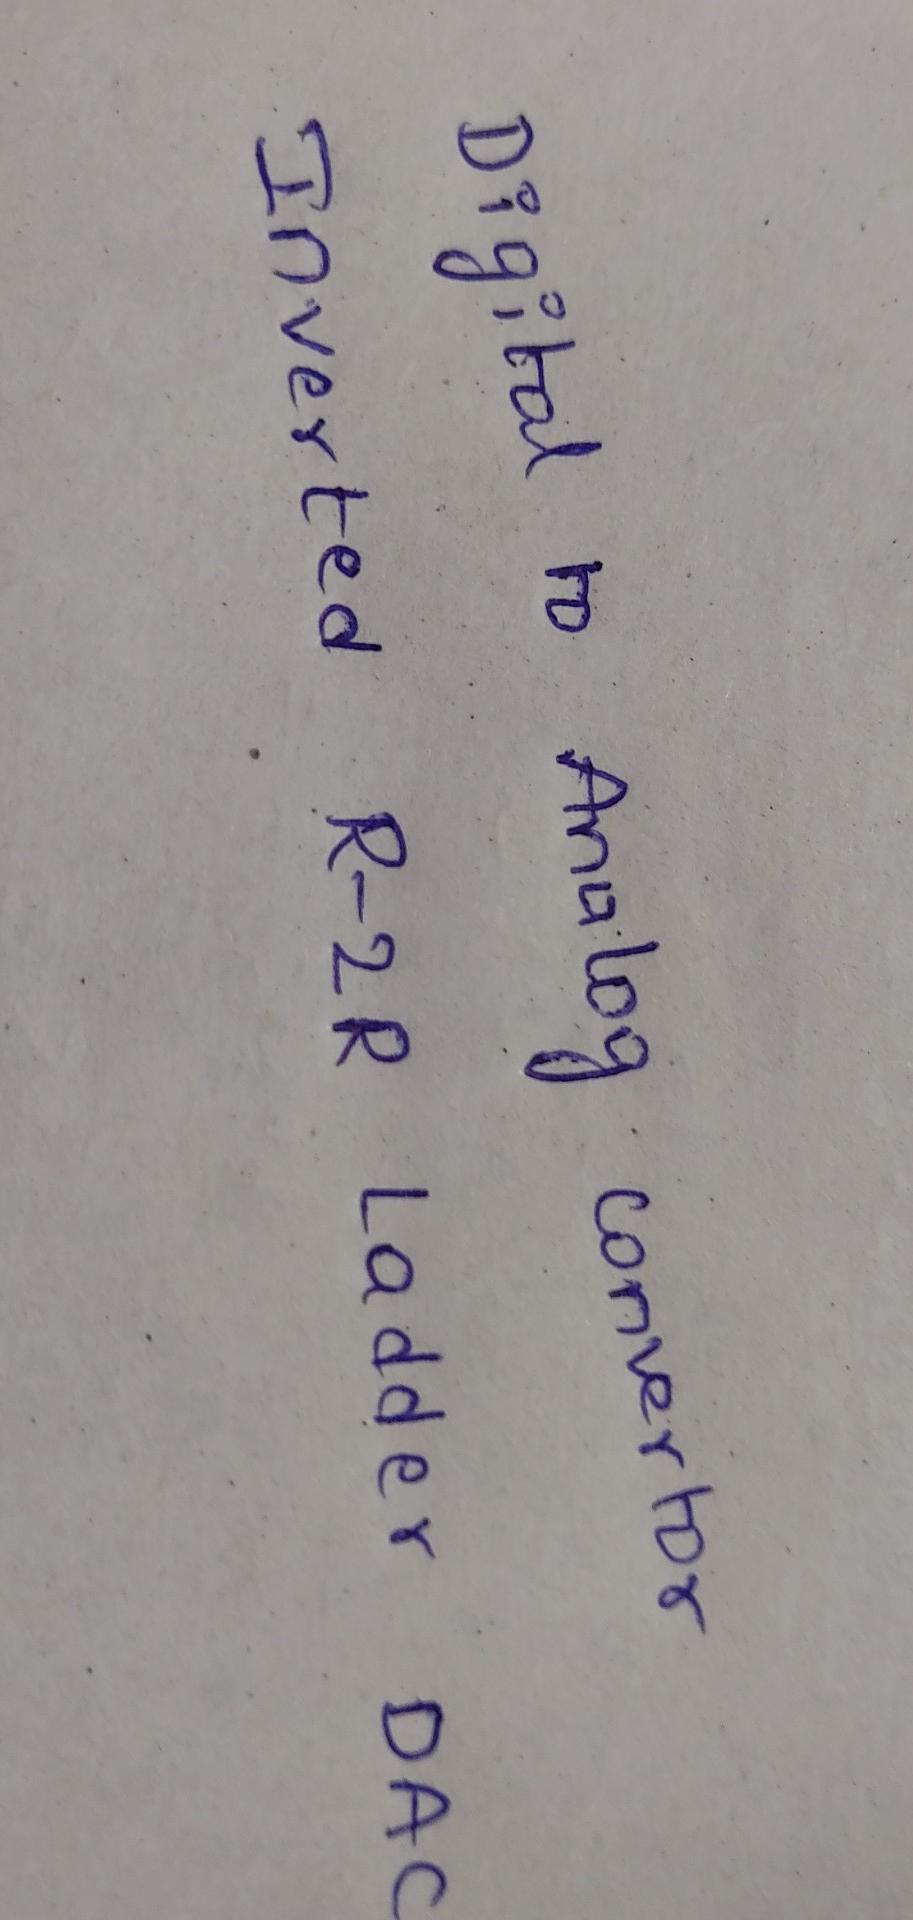 Digital to Analog convertor
Inverted R-2R Ladder DAC